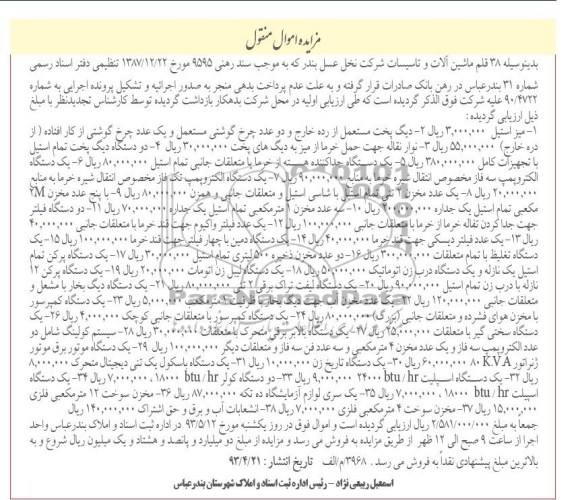 مزایده اموال منقول
بدینوسیله ۳۸ قلم ماشین آلات و تاسیسات شرکت نخل عسل بندر که به موجب سند رهنی ۹۵۹۵ مورخ ۱۳۸۷/۱۲/۲۲ تنظیمی دفتر اسناد رسمی
شماره ۳۱ بندرعباس در رهن بانک صادرات قرار گرفته و به علت عدم پرداخت بدهی منجر به صدور اجرائیه و تشکیل پرونده اجرایی به شماره
۹۰/۴۷۲۲ علیه شرکت فوق الذکر گردیده است که طی ارزیابی اولیه در محل شرکت بدهکار بازداشت گردیده توسط کارشناس تجدیدنظر با مبلغ
ذیل ارزیابی گردیده :
۱- میز استیل ۳,۰۰۰,۰۰۰ ریال ۲- دیگ پخت مستعمل از رده خارج و دو عدد چرخ گوشتی مستعمل و یک عدد چرخ گوشتی از کار افتاده ( از
دره خارج) ۵۵,۰۰۰,۰۰۰ ریال ۳- نوار نقاله جهت حمل خرما از میز به دیگ های پخت ۳۰,۰۰۰,۰۰۰ ریال ۴- دو دستگاه دیگ پخت تمام استیل
با تجهیزات کامل ۳۸۰,۰۰۰,۰۰۰ ریال ۵- یک دستگاه جداکننده هسته از خرما با متعلقات جانبی تمام استیل ۸۰,۰۰۰,۰۰۰ ریال ۶- یک دستگاه
الکتروپمپ سه فاز مخصوص انتقال شیره خرما به ۷- یک دستگاه الکتروپمپ تک فاز مخصوص انتقال شیره خرما به مخازن
۲۰,۰۰۰,۰۰۰ ریال ۸- یک عدد مخزن تمام استیل با شاسی استیل و متعلقات جانبی و همزن ۸۰,۰۰۰,۰۰۰ ریال ۹- با پنج عدد مخزن ۲M
مکعبی تمام استیل یک جداره ریال ۱۰- سه عدد مخزن مترمکعبی تمام استیل یک جداره ۷۰,۰۰۰,۰۰۰ ریال ۱۱- دو دستگاه فیلتر
جهت جدا کردن تفاله خرما از خرما با متعلقات جانبی ۱۰۰,۰۰۰,۰۰۰ ریال ۱۲- یک عدد فیلتر واکیوم جهت قند خرما با متعلقات جانبی ۴۰,۰۰۰,۰۰۰
ریال ۱۳- یک عدد فیلتر دیسکی جهت قند خرما ۴۰,۰۰۰,۰۰۰ ریال ۱۴- یک دستگاه دمین با چهار فیلتر جهت قند خرما ۱۰۰,۰۰۰,۰۰۰ ریال ۱۵- یک
دستگاه تغلیظ با تمام متعلقات ۳۰۰,۰۰۰,۰۰۰ ریال ۱۶- دو عدد مخزن ذخیره ۵۰۰ لیتری تمام استیل ۳۰,۰۰۰,۰۰۰ ریال ۱۷- یک دستگاه پرکن تمام
استیل یک نازله و یک دستگاه درب زن اتوماتیک ۵۰,۰۰۰,۰۰۰ ریال ۱۸- یک دستگاه لیبل زن اتومات ۲۰,۰۰۰,۰۰۰ ریال ۱۹- یک دستگاه پرکن ۱۲
نازله با درب زن تمام استیل ۹۰,۰۰۰,۰۰۰ ریال ۲۰- یک دستگاه لیفت تراک برقی ۸۰,۰۰۰,۰۰۰ ریال ۲۱- یک دستگاه دیگ بخار با مشعل و
متعلقات جانبی ۱۲۰,۰۰۰,۰۰۰ ریال ۲۲- ۵,۰۰۰,۰۰۰ ریال ۲۳- یک دستگاه کمپرسور
با مخزن هوای فشرده و متعلقات جانبی (بزرگ) ۸۰,۰۰۰,۰۰۰ ریال ۲۴- یک دستگاه کمپرسور با متعلقات جانبی کوچک ۴,۰۰۰,۰۰۰ ریال ۲۶- یک
دستگاه سختی گیر با متعلقات ۲۵,۰۰۰,۰۰۰ ریال ۲۷- یک دستگاه بالابر برقی متحرک با متعلقات ۳۰,۰۰۰,۰۰۰ ریال ۲۸- سیستم کولینگ شامل دو
عدد الکتروپمپ سه فاز و یک عدد مخزن ۴ مترمکعبی و سه عدد فن سه فاز و متعلقات دیگر ۱۰۰,۰۰۰,۰۰۰ ریال ۲۹- یک دستگاه موتور برق موتور
ژنراتور ۸۰ K.V.A ۶۰,۰۰۰,۰۰۰ ریال ۳۰- یک دستگاه تاریخ زن ۱۰,۰۰۰,۰۰۰ ریال ۳۱- یک دستگاه باسکول یک تنی دیجیتال متحرک ۸,۰۰۰,۰۰۰
ریال ۳۲- یک دستگاه اسپلیت ۲۴۰۰۰ btu / hr ۹,۰۰۰,۰۰۰ ریال ۳۳- دو دستگاه کولر ۱۸۰۰۰ btu / hr ، ۷,۰۰۰,۰۰۰ ریال ۳۴- یک دستگاه
اسپیلت ۱۸۰۰۰ btu / hr ، ۷,۰۰۰,۰۰۰ ریال ۳۵- یک سری لوازم آزمایشگاه ده تکه ۸۷,۰۰۰,۰۰۰ ریال ۳۶- مخزن سوخت ۱۲ مترمکعبی فلزی
۱۵,۰۰۰,۰۰۰ ریال ۳۷- مخزن سوخت ۴ مترمکعبی فلزی ۷,۰۰۰,۰۰۰ ریال ۳۸- انشعابات آب و برق و حق اشتراک ۱۴۰,۰۰۰,۰۰۰ ریال
جمعا به مبلغ ۲/۵۸۱/۰۰۰/۰۰۰ ریال ارزیابی گردیده است و اموال فوق در روز یکشنبه مورخ ۹۳/۵/۱۲ در اداره ثبت اسناد و املاک بندرعباس واحد
اجرا از ساعت ۹ صبح الی ۱۲ ظهر از طریق مزایده به فروش می رسد و مزایده از مبلغ دو میلیارد و پانصد و هشتاد و یک میلیون ریال شروع و به
بالاترین مبلغ پیشنهادی نقداً به فروش می رسد . ۳۹۶۸/م/الف تاریخ انتشار : ۹۳/۴/۲۱
اسمعیل ربیعی نژاد - رئیس اداره ثبت اسناد و املاک شهرستان بندرعباس